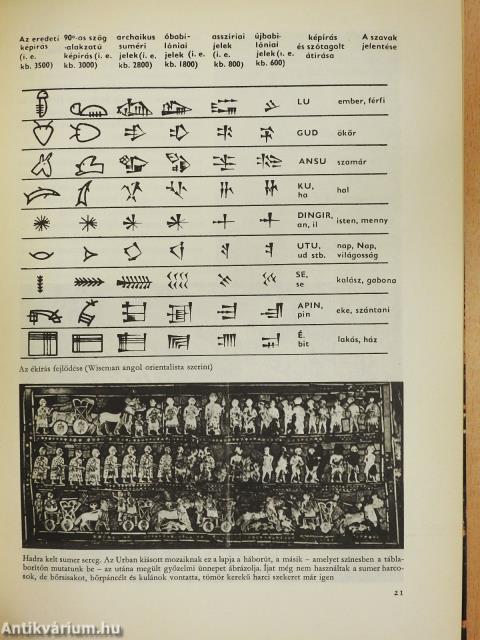 Az eredeti képirás (i. e. kb. 3500)
90°-os szög -alakzatú képirás (i. e. kb. 3000)
archaikus suméri jelek (i. e. kb. 2800)
óbabi- lóniai jelek (i. e. kb. 1800)
assziriai jelek (i. e. kb. 800)
újbabi- lóniai jelek (i. e. kb. 600)
képirás és szótagolt átirása
A szavak jelentése
LU ember, férfi
GUD ökör
ANSU szamár
KU, ha hal
DINGIR, an, il isten, menny
UTU, ud stb. nap, Nap, világosság
SE, se kalász, gabona
APIN, pin eke, szántani
É. bit lakás, ház
Az ékírás fejlődése (Wiseman angol orientalista szerint)
Hadra kelt sumer sereg. Az Urban kiásott mozaiknak ez a lapja a háborút, a másik – amelyet színesben a tábla-
borítón mutatunk be – az utána megült győzelmi ünnepet ábrázolja. Íjat még nem használtak a sumer harco-
sok, de bőrsisakot, bőrpáncélt és kulánok vontatta, tömör kerekű harci szekeret már igen
21
Antikvárium.hu